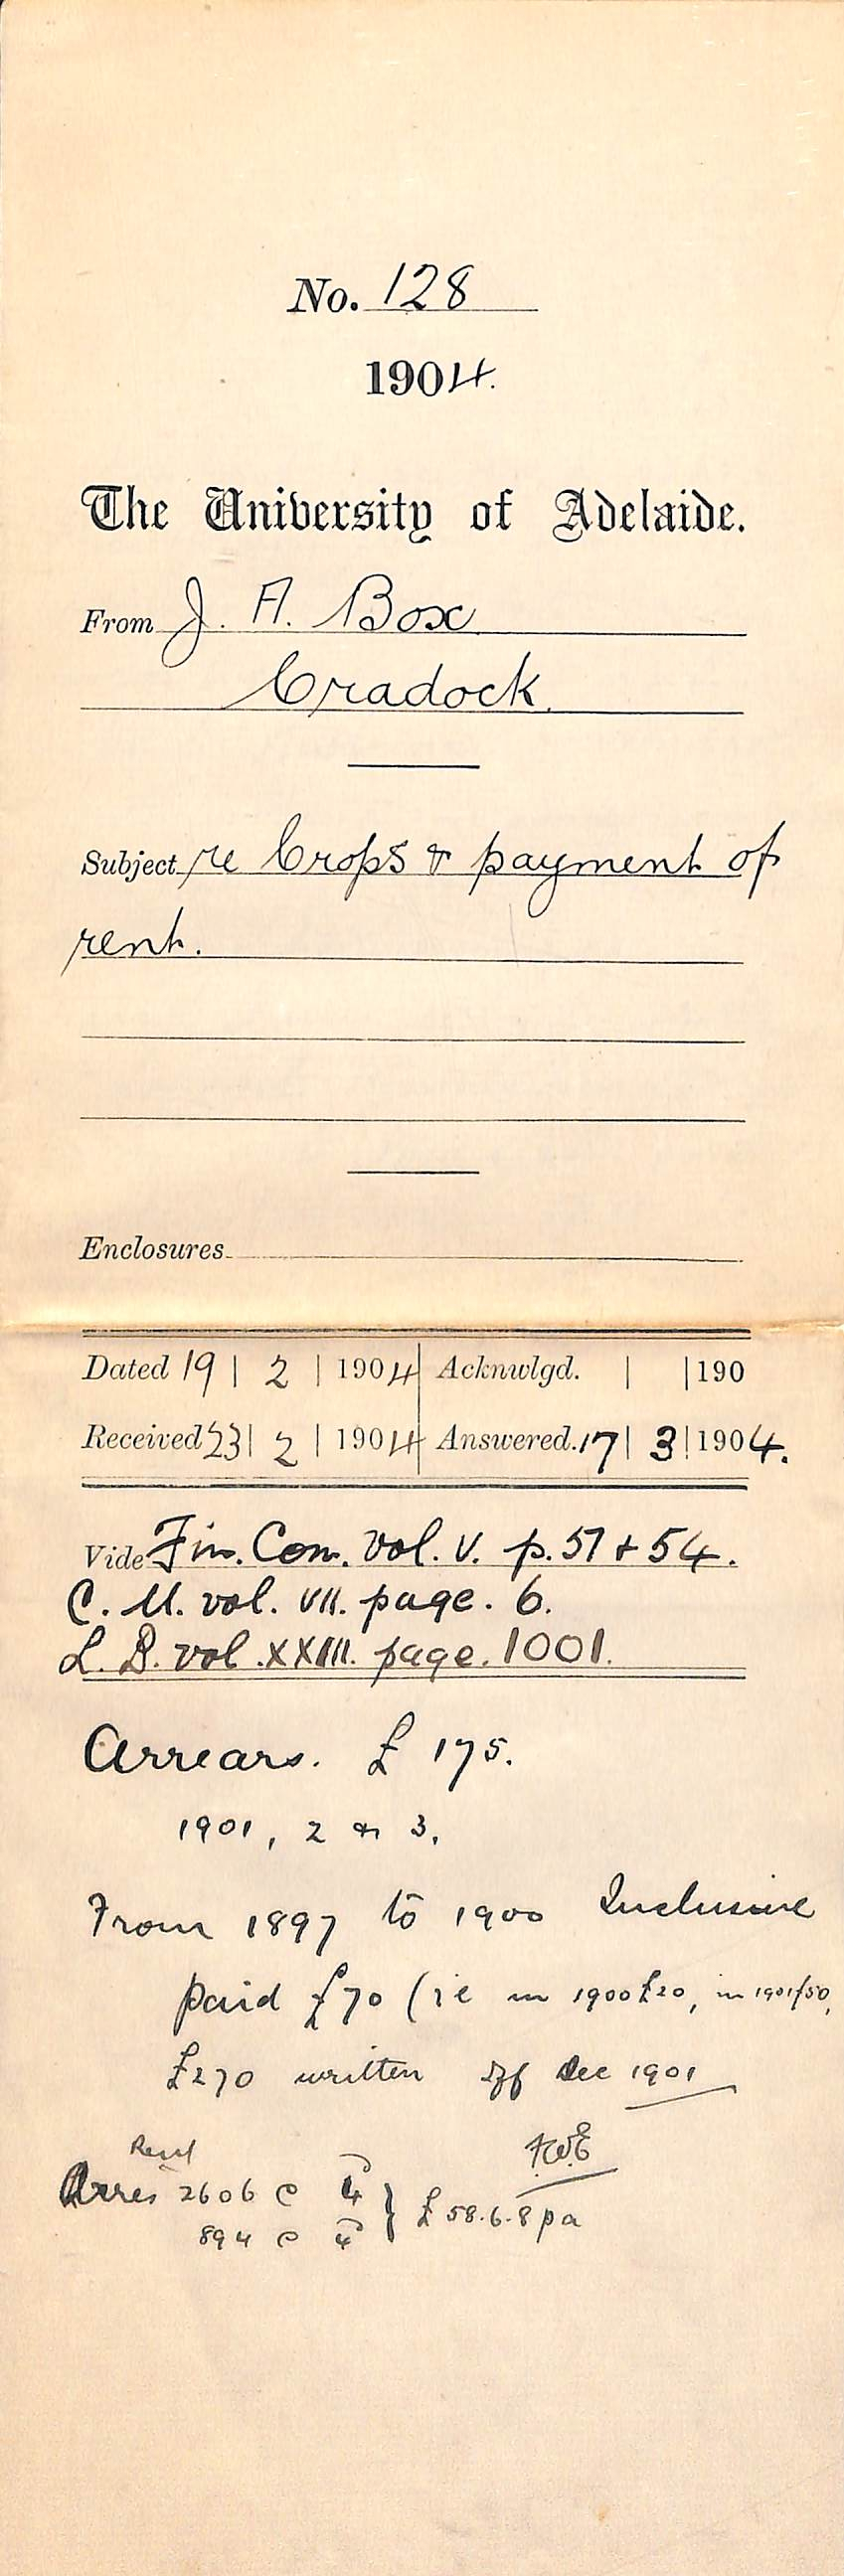 No. 128
1904.
The University of Adelaide.
From J. A. Box
Cradock.
Subject re Crops & payment of
rent.
Enclosures
Dated 19 | 2 | 1904 Acknwlgd. | | 190
Received 23 | 2 | 1904 Answered. 17 | 3 | 1904.
Vide Fin. Com. vol. V. p. 51 + 54.
C. M. vol. VII. page. 6.
L. B. vol. XXIII. page. 1001.
Arrears. £ 175.
1901, 2 & 3.
From 1897 to 1900 Inclusive
paid £70 (ie in 1900 £20, in 1901/50,
£270 written off Dec 1901
Rent
Acres 2606 @ 4
894 @ 4 } £58.6.8 pa